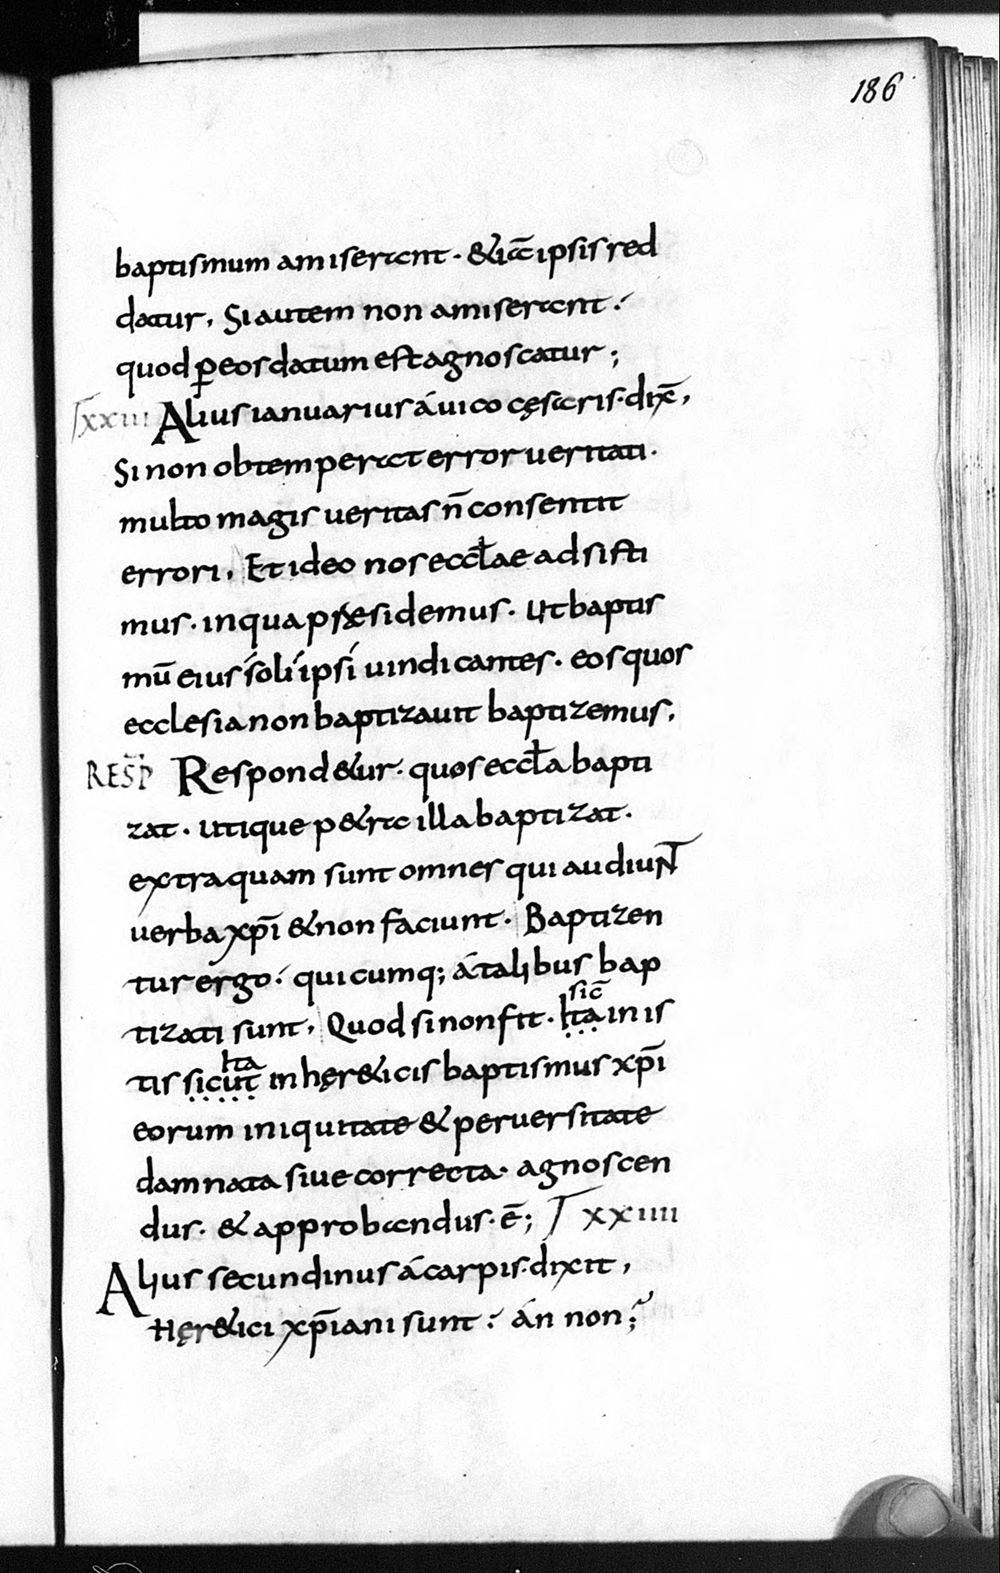 186
baptismum amiserant · & ia ipsis red
datur, Si autem non amiserant ·
quod p̱ eos datum est agnoscatur ;
xxiii Alius ianuarius á uico cęsaris · dix̄,
Si non obtemperat error ueritati ·
multo magis ueritas n̄ consentit
errori, Et ideo nos eccłae adsisti
mus · in qua praesidemus · ut baptis
mū eius soli ipsi uindicantes · eos quos
ecclesia non baptizauit baptizemus,
RESP̄ Respond&ur · quos eccła bapti
zat · utique p&ra illa baptizat ·
extra quam sunt omnes qui audiunt
uerba xp̄i & non faciunt · Baptizen
tur ergo · quicumq; á talibus bap
tizati sunt, Quod si non fit · ita in is
sic̄
tis sicut in hęr&icis baptismus xp̄i
ita
eorum iniquitate & peruersitate
damnata siue correcta · agnoscen
dus · & approbandus · ē ; xxiiii
Alius secundinus á carpis · dixit,
Hęr&ici xp̄iani sunt · án non ;